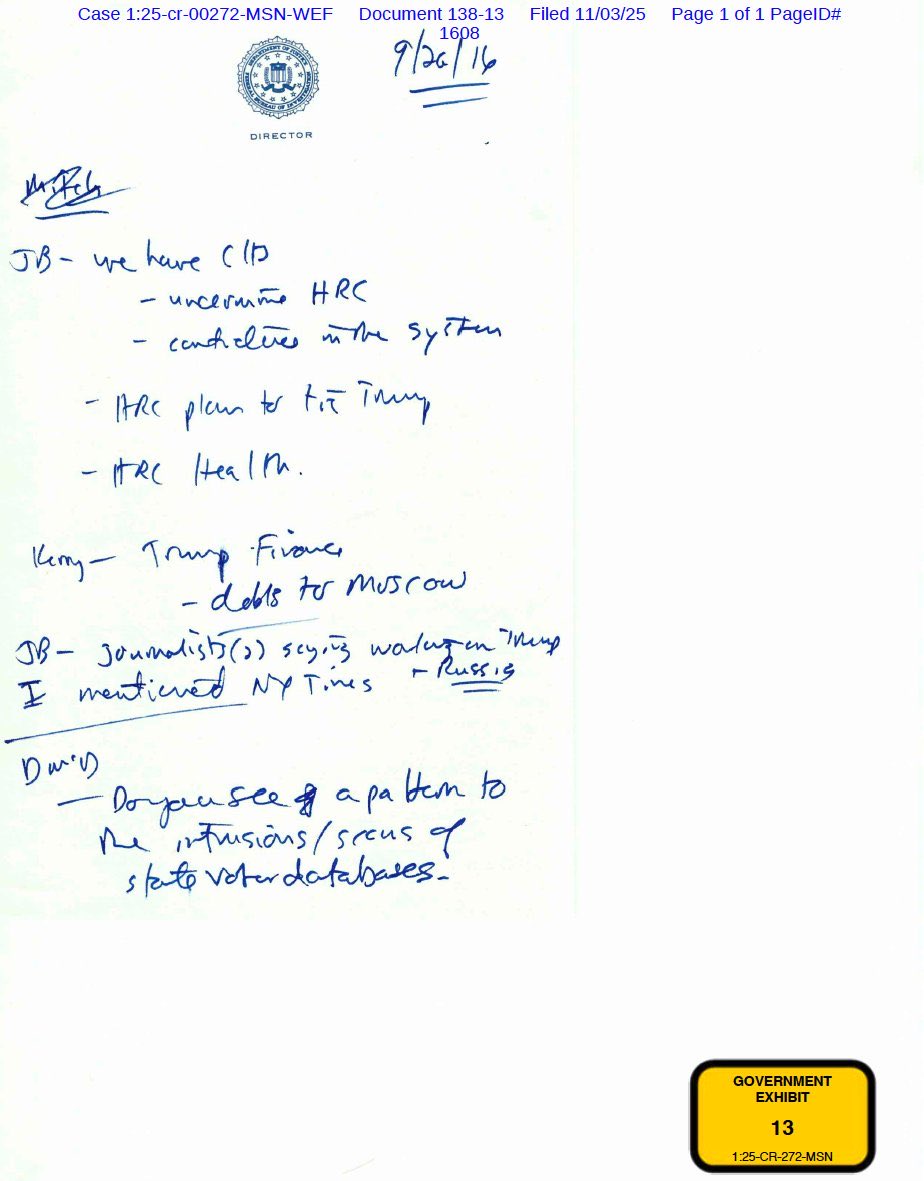 Case 1:25-cr-00272-MSN-WEF Document 138-13 Filed 11/03/25 Page 1 of 1 PageID#
1608
9/26/16
DEPARTMENT OF JUSTICE
FEDERAL BUREAU OF INVESTIGATION
DIRECTOR
JB - we have
- HRC
- in the system
- HRC plan to tie Trump
- HRC Health.
Kerry - Trump Finance
- debts to Moscow
JB - journalists(2) saying working on Trump
+ Russia
I mentioned NY Times
D McD
- Do you see a pattern to
the intrusions/scans of
state voter databases.
GOVERNMENT
EXHIBIT
13
1:25-CR-272-MSN